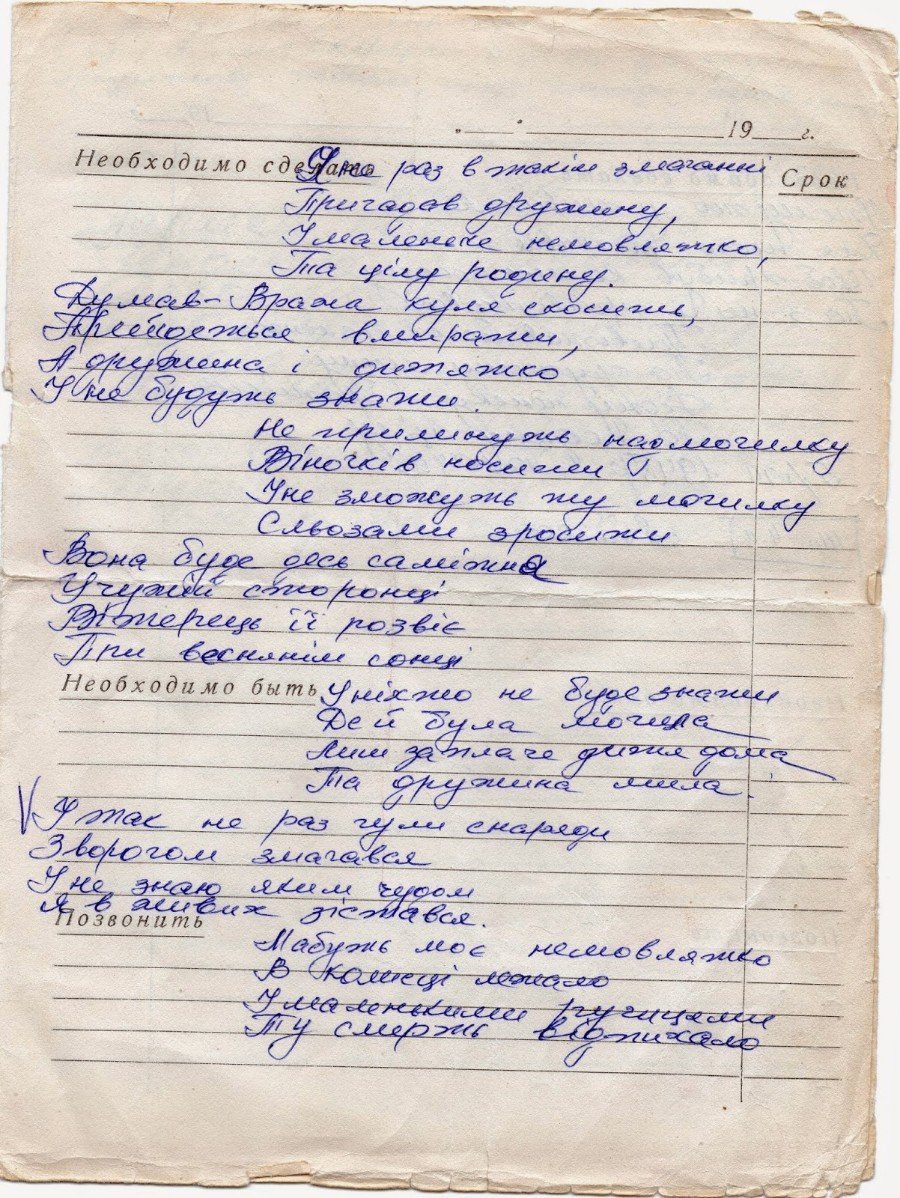 19 г.
Необходимо сделать
Срок
Й не раз в такім змаганні
Пригадав дружину,
І маленьке немовлятко,
Та цілу родину.
Думав – Вража куля скосить,
Прийдеться вмирати,
А дружина і дитятко
І не будуть знати.
Не прилинуть на могилку
Віночків носити
І не зможуть ту могилку
Сльозами зросити
Вона буде десь самітня
У чужій сторонці
Вітерець її розвіє
При веснянім сонці
Необходимо быть
І ніхто не буде знати
Де й була могила
Лиш заплаче дитя дома
Та дружина мила!
V І так не раз чули снаряди
З ворогом змагався
І не знаю яким чудом
Я в живих зістався.
Позвонить
Мабуть моє немовлятко
В колисці лежало
І маленькими ручицями
Ту смерть відпихало